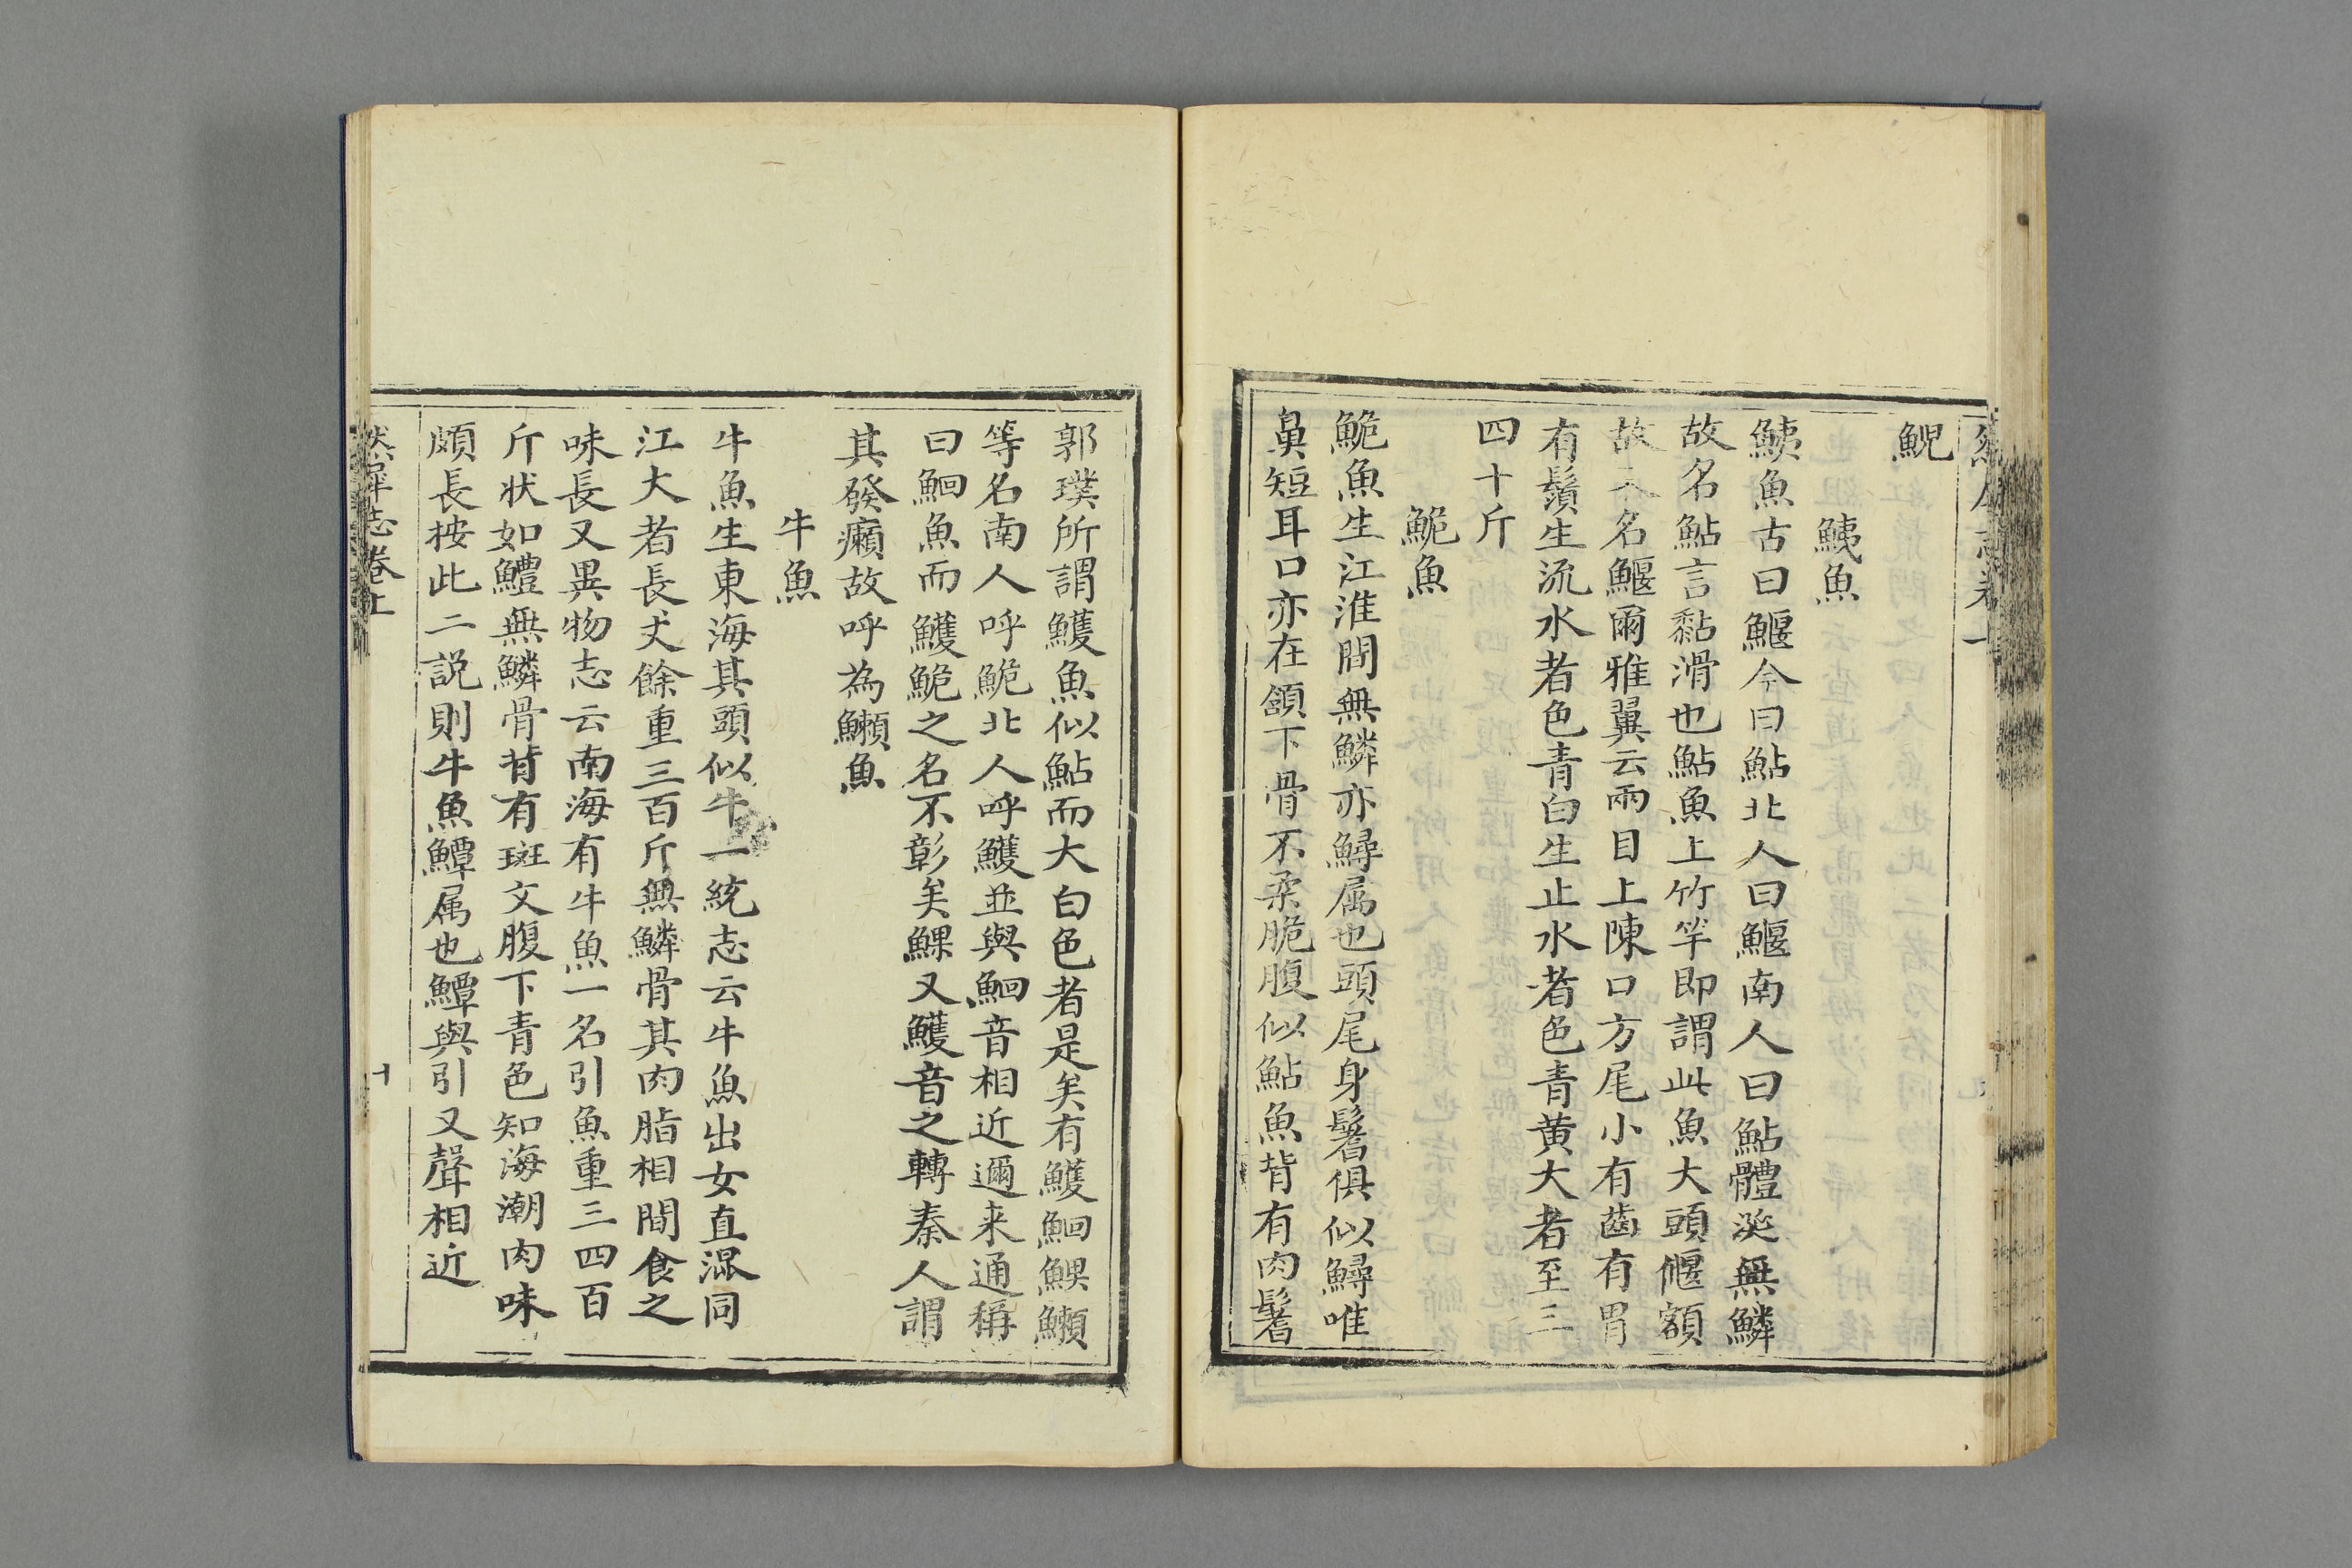 鯢
鮧魚
鮧魚古曰鰋今曰鮎北人曰鰋南人曰鮎體涎無鱗
故名鮎言黏滑也鮎魚上竹竿即謂此魚大頭偃額
故又名鰋爾雅翼云兩目上陳口方尾小有齒有胃
有鬚生流水者色青白生止水者色青黄大者至三
四十斤
鮠魚
鮠魚生江淮間無鱗亦鱘属也頭尾身鬐俱似鱘唯
鼻短耳口亦在頷下骨不柔脆腹似鮎魚背有肉鬐
郭璞所謂鱯魚似鮎而大白色者是矣有鱯鮰鰾鱴
等名南人呼鮠北人呼鱯並與鮰音相近邇来通稱
曰鮰魚而鱯鮠之名不彰矣鰁又鱯音之轉秦人謂
其發癩故呼為鱴魚
牛魚
牛魚生東海其頭似牛一統志云牛魚出女直混同
江大者長丈餘重三百斤無鱗骨其肉脂相間食之
味長又異物志云南海有牛魚一名引魚重三四百
斤状如鱧無鱗骨背有斑文腹下青色知海潮肉味
頗長按此二説則牛魚鱏属也鱏與引又聲相近
然犀志卷上
十